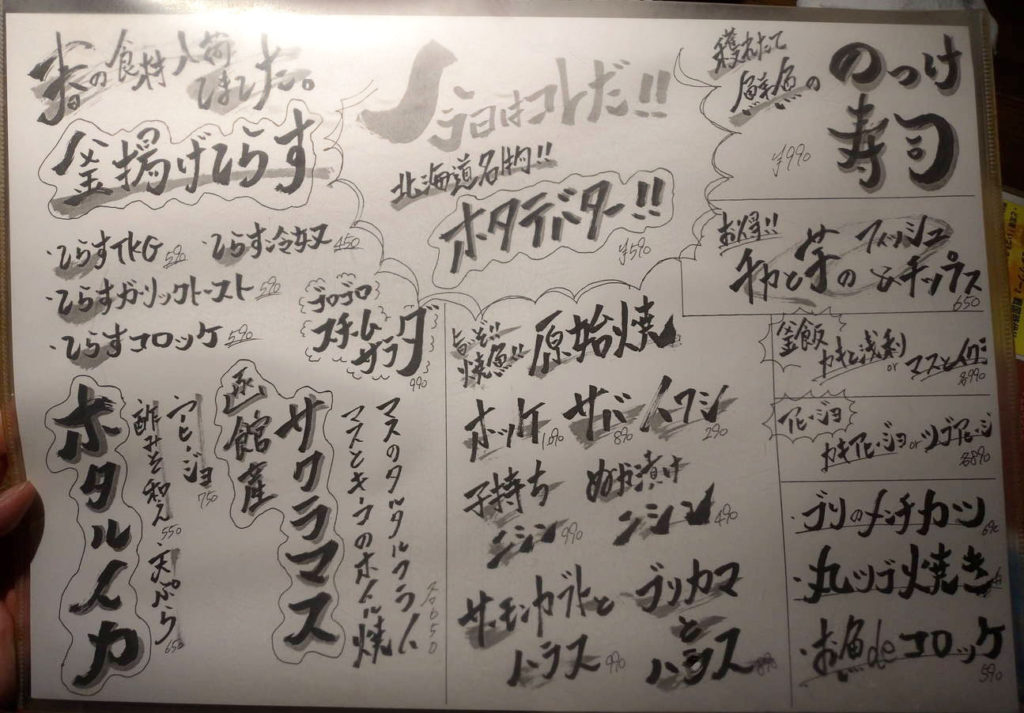 春の食材入荷
しました。
釜揚げしらす
・しらすTKG 590
・しらす冷奴 450
・しらすガーリックトースト 590
・しらすコロッケ 590
ゴロゴロ
スチーム
サラダ
990
ホタルイカ
アヒージョ
750
酢みそ和え 550
天ぷら
650
函館産
サクラマス
マスのタルタルクリーム
マスとキノコのホイル焼
今日はコレだ!!
北海道名物!!
ホタテバター!!
¥590
旨いぞ!!
焼魚!!
原始焼
ホッケ
サバ 890
イワシ 290
子持ち
ニシン 990
ぬか漬け
ニシン 490
サーモンカブトと
ハラス 990
ブリカマ
と
ハラス
獲れたて
鮮魚の
のっけ
寿司
¥990
お得!!
フィッシュ
&チップス
650
釜飯
カキと浅利
or
マスとイクラ
各990
アヒージョ
カキアヒージョ or ツブアヒージョ
各890
・ブリのメンチカツ 690
・丸ツブ焼き
・お魚deコロッケ
590